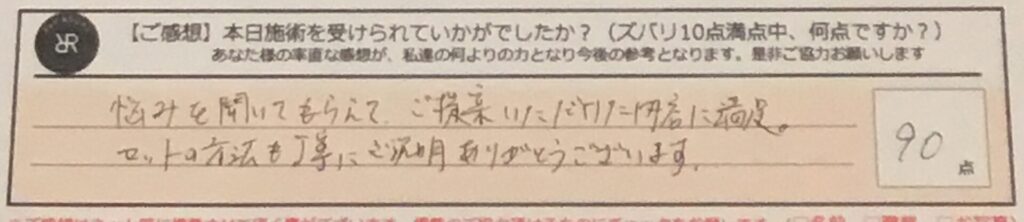 RR
【ご感想】本日施術を受けられていかがでしたか？（ズバリ10点満点中、何点ですか？）
あなた様の率直な感想が、私達の何よりの力となり今後の参考となります。是非ご協力お願いします
悩みを聞いてもらえて、ご提案いただけた内容に満足。
セットの方法も丁寧にご説明ありがとうございます。
90点